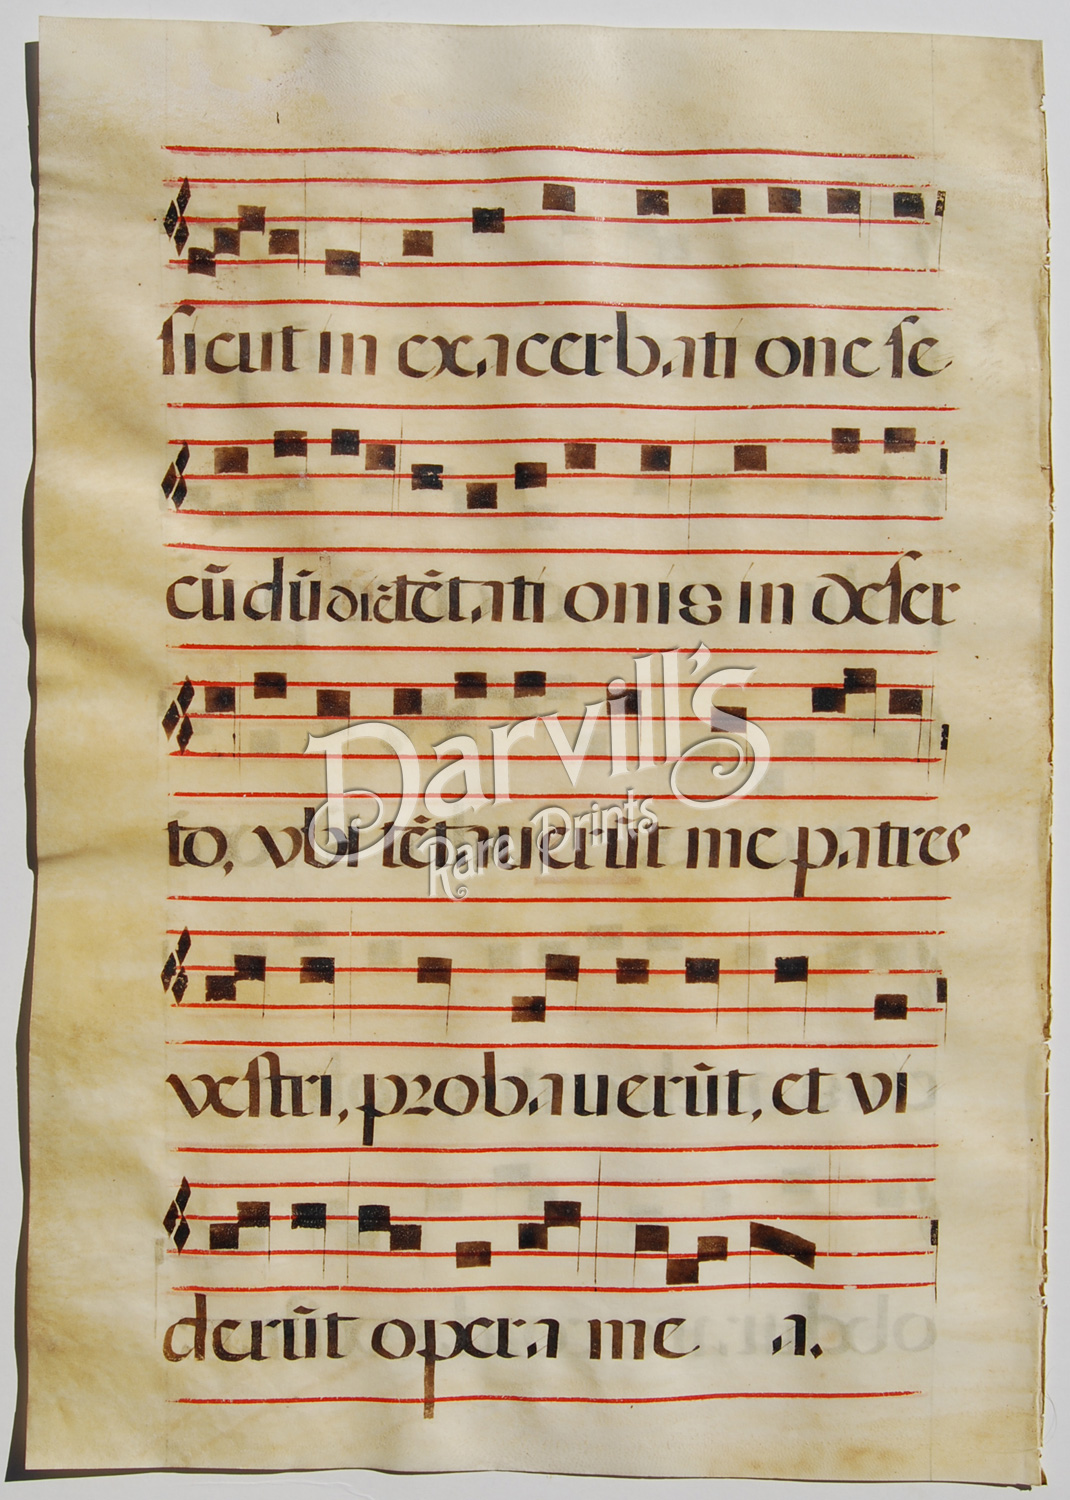 sicut in exacerbati one se
cũ dũ diẽ tẽtati onis in deser
to, vbi tẽtauerũt me patres
vestri, probauerũt, et vi
derũt opera me a.
Darvill's
Rare Prints